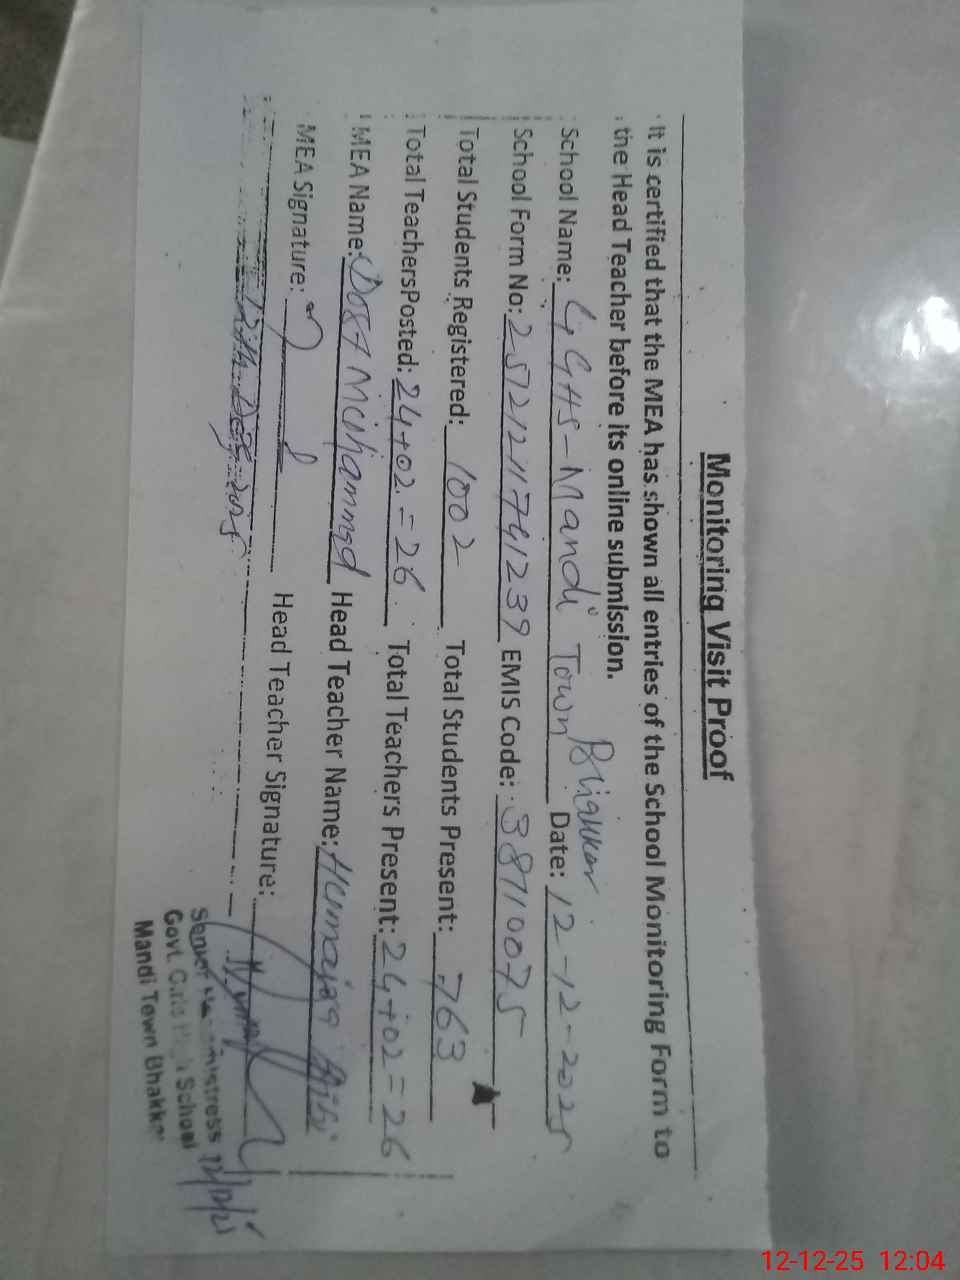 Monitoring Visit Proof
It is certified that the MEA has shown all entries of the School Monitoring Form to
the Head Teacher before its online submission.
School Name: GGHS-Mandi Town Bhakkar Date: 12-12-2025
School Form No: EMIS Code: 38710075
Total Students Registered: 1002 Total Students Present: 763
Total TeachersPosted: 24+02=26 Total Teachers Present: 24+02=26
MEA Name: Dost Muhammad Head Teacher Name: Humaira Bibi
MEA Signature: Head Teacher Signature:
Govt. Girls High School
Mandi Town Bhakkar
12-12-25 12:04